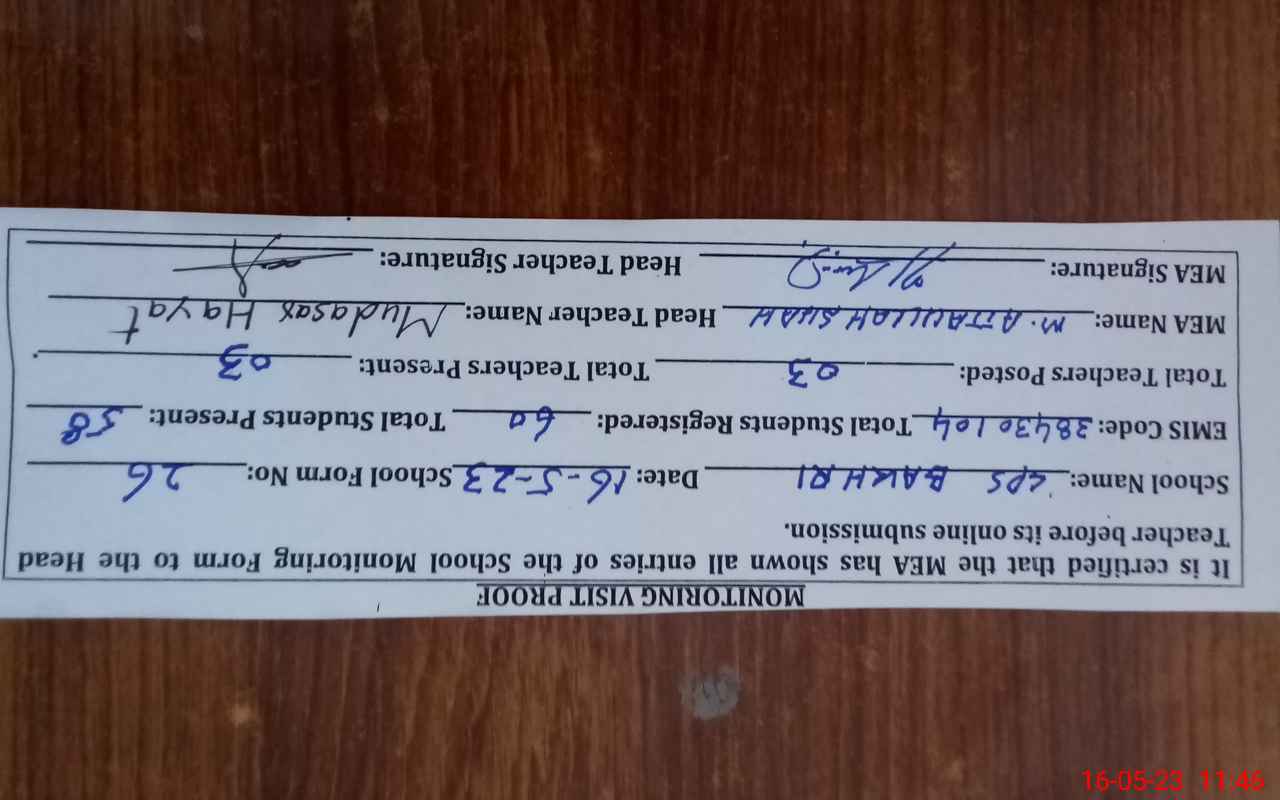 MONITORING VISIT PROOF
It is certified that the MEA has shown all entries of the School Monitoring Form to the Head
Teacher before its online submission.
School Name: GPS BAKHRI Date: 16-5-23 School Form No: 26
EMIS Code: 38430104 Total Students Registered: 60 Total Students Present: 58
Total Teachers Posted: 03 Total Teachers Present: 03
MEA Name: M. ATTAULLAH SHAH Head Teacher Name: Mudasar Hayat
MEA Signature: Head Teacher Signature:
16-05-23 11:46